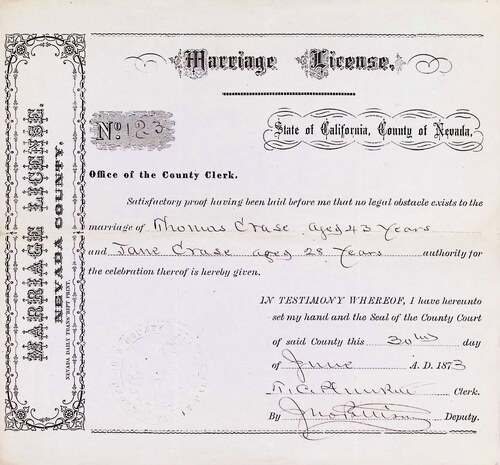 MARRIAGE LICENSE.
NEVADA COUNTY.
NEVADA DAILY TRANSCRIPT PRINT.
Marriage License.
No. 123
State of California, County of Nevada.
Office of the County Clerk.
Satisfactory proof having been laid before me that no legal obstacle exists to the
marriage of Thomas Crase aged 43 Years
and Jane Crase aged 28 Years authority for
the celebration thereof is hereby given.
IN TESTIMONY WHEREOF, I have hereunto
set my hand and the Seal of the County Court
of said County this 30th day
of June A. D. 1873
Clerk.
By Deputy.